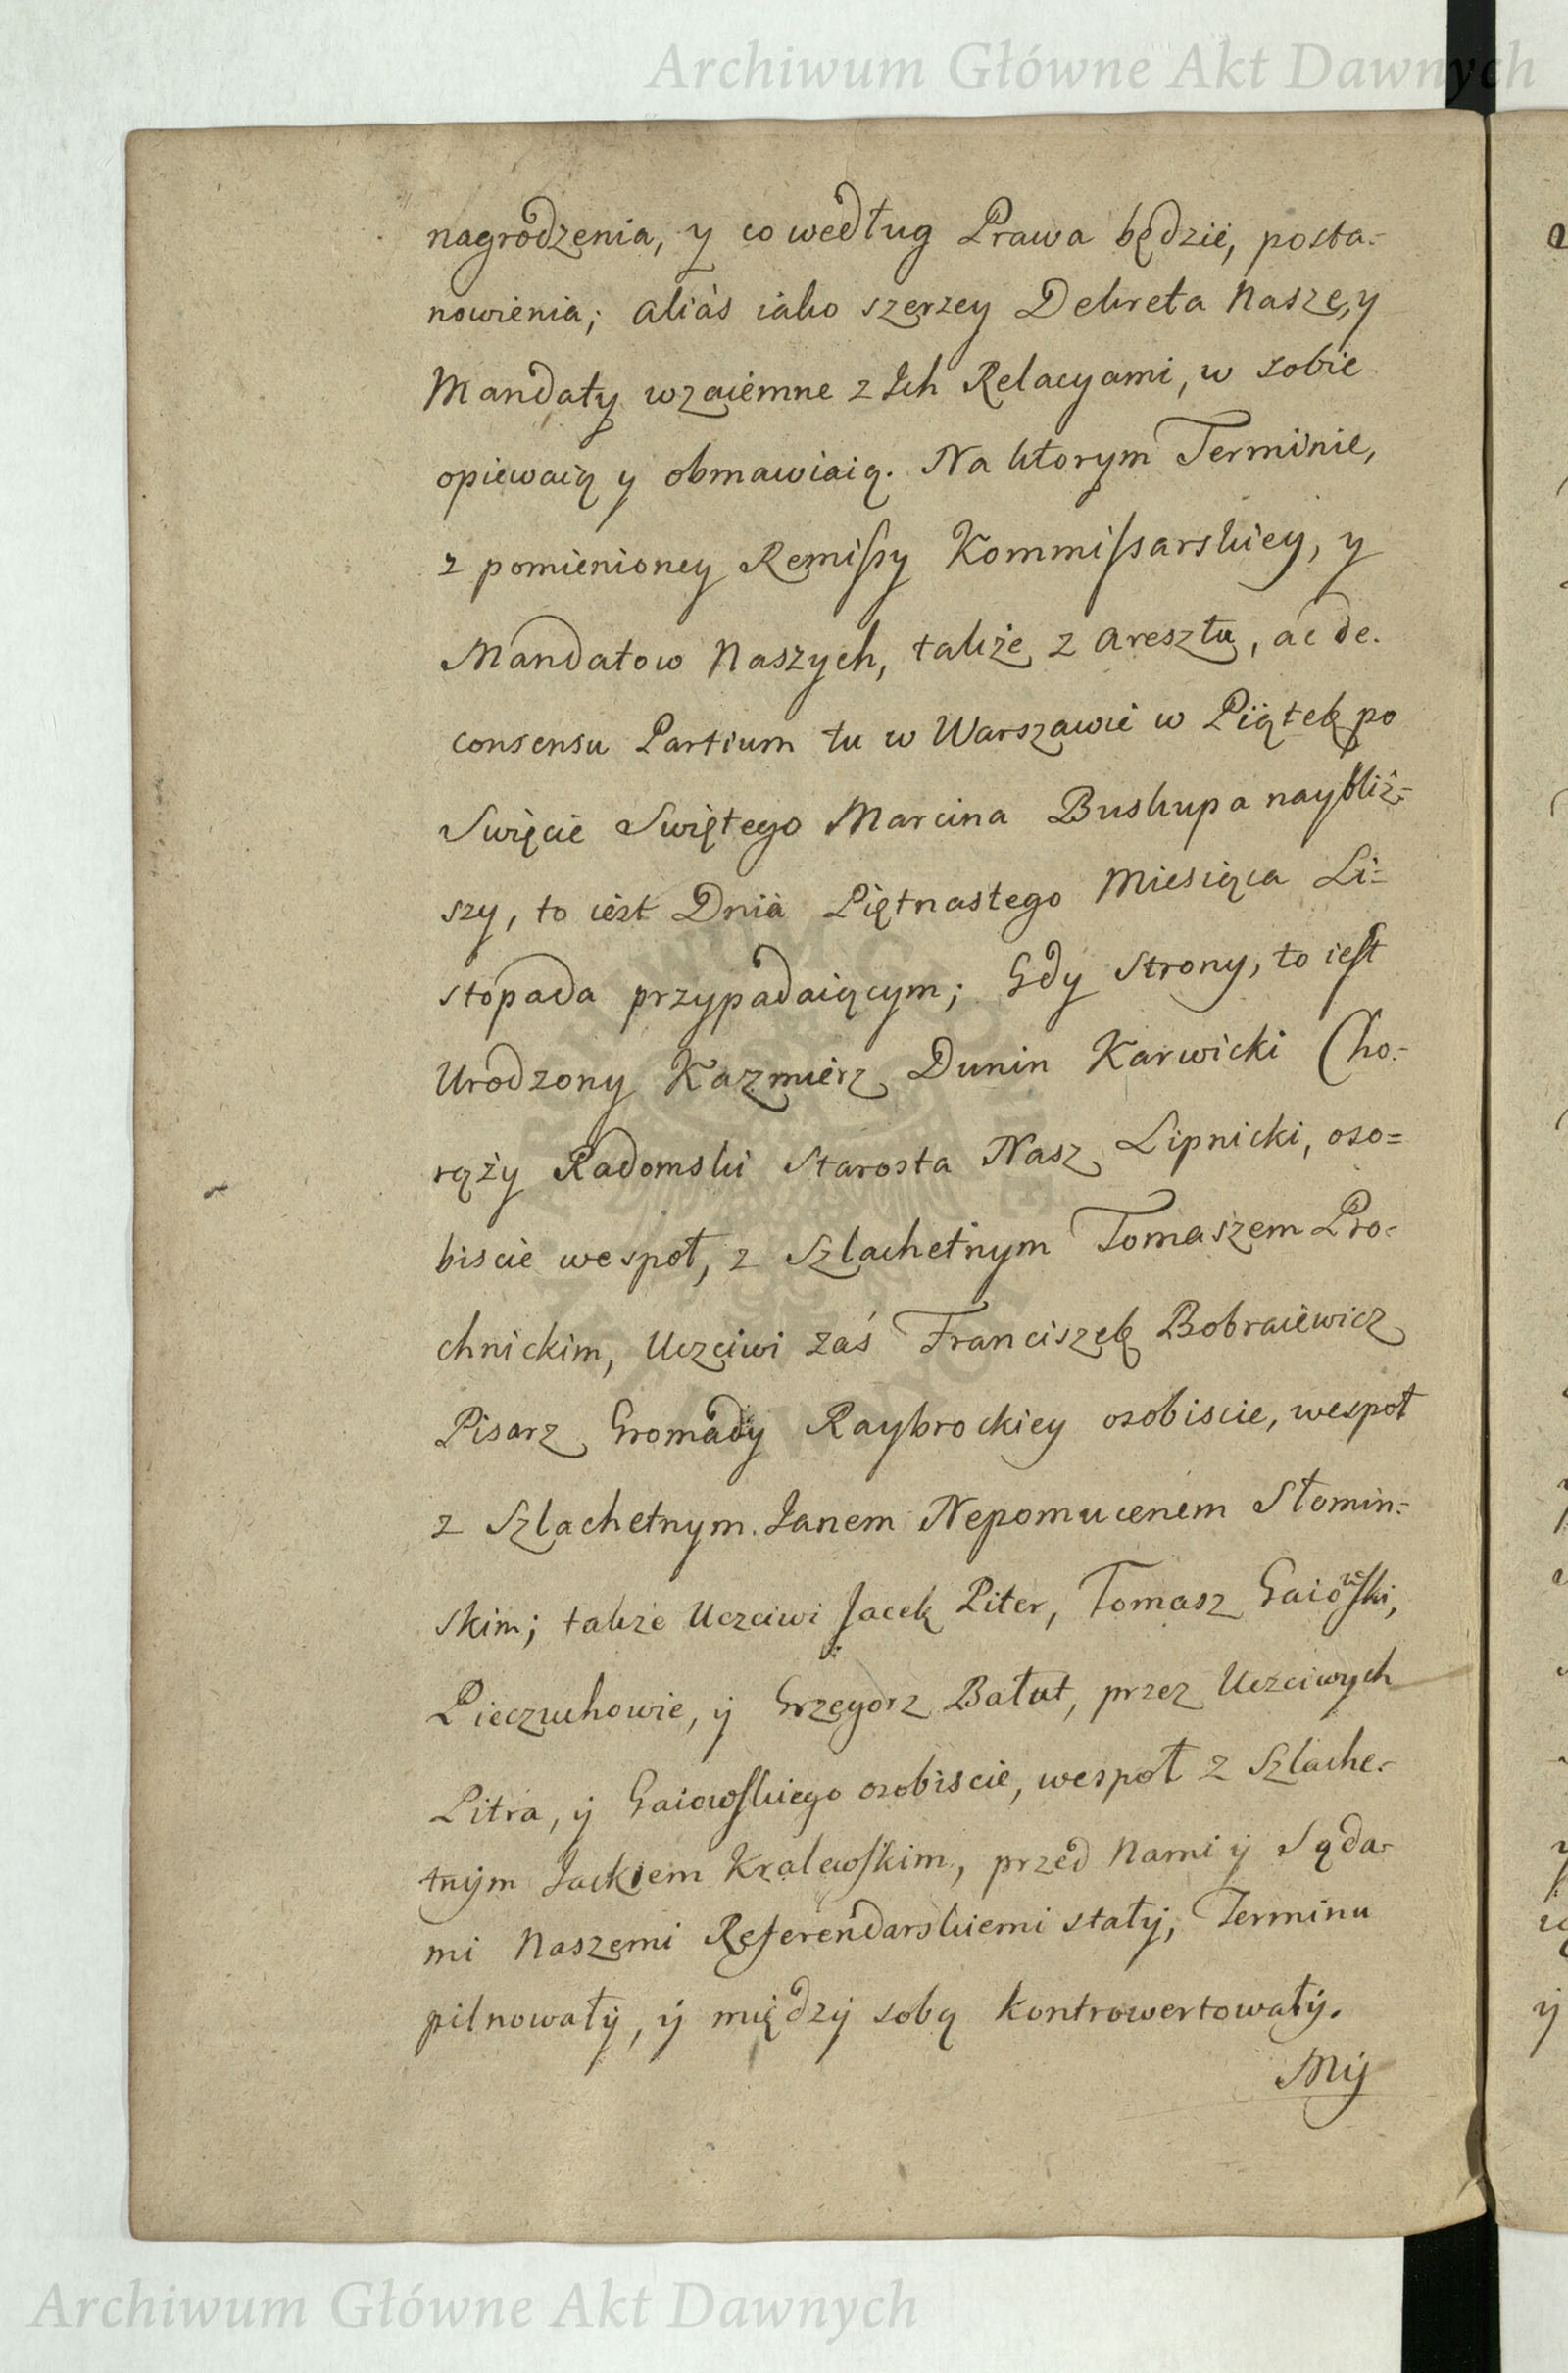 Archiwum Główne Akt Dawnych
nagrodzenia, y co według Prawa będzie, posta-
nowienia; aliàs iako szerzey Dekreta Nasze, y
Mandaty wzaiemne z Ich Relacyami, w sobie
opiewaią y obmawiaią. Na ktorym Terminie,
z pomienioney Remissy Kommissarskiey, y
Mandatow Naszych, także z aresztu, ac de
consensu Partium tu w Warszawie w Piątek po
Swięcie Swiętego Marcina Buskupa naybliż-
szy, to iest Dnia Piętnastego Miesiąca Li=
stopada przypadaiącym; Gdy Strony, to iest
Urodzony Kazmierz Dunin Karwicki Cho-
rąży Radomski Starosta Nasz Lipnicki, oso=
biscie wespoł, z Szlachetnym Tomaszem Pro-
chnickim, Uczciwi zaś Franciszek Bobraiewicz
Pisarz Gromady Raybrockiey osobiscie, wespoł
z Szlachetnym Janem Nepomucenem Słomin-
skim; także Uczciwi Jacek Piter, Tomasz Gaiowski,
Pieczuchowie, ÿ Grzegorz Bałut, przez Uczciwych
Pitra, ÿ Gaiowskiego osobiscie, wespoł z Szlache-
tnÿm Jackiem Kralewskim, przed Nami ÿ Sąda-
mi Naszemi Referendarskiemi stałÿ, Terminu
pilnowałÿ, ÿ międzÿ sobą kontrowertowałÿ.
Mÿ
ARCHIWUM GŁÓWNE AKT DAWNYCH
Archiwum Główne Akt Dawnych